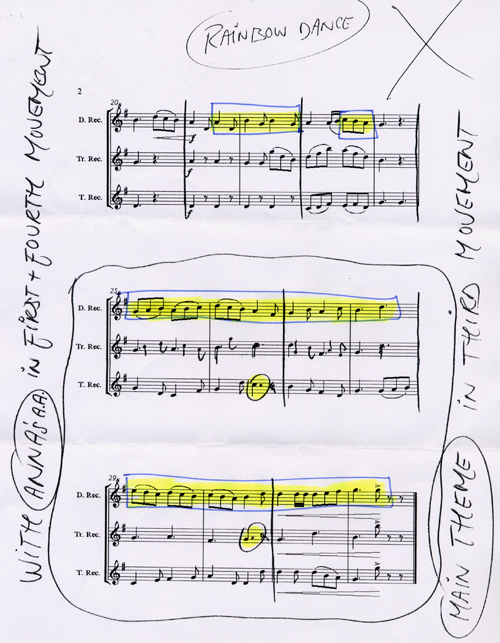 RAINBOW DANCE
2
20
D. Rec.
Tr. Rec.
T. Rec.
25
D. Rec.
Tr. Rec.
T. Rec.
29
D. Rec.
Tr. Rec.
T. Rec.
WITH ANNA'S A.A. IN FIRST + FOURTH MOVEMENT
MAIN THEME IN THIRD MOVEMENT